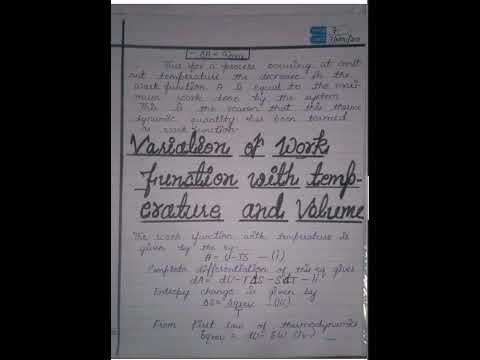 - ΔA = Wmax
Thus for a process occuring at const
ant temperature the decrease in the
work function A is equal to the maxi
mum work done by the system
This is the reason that this thermo
dynamic quantity has been termed
as work function.
Variation of Work
function with temp-
erature and Volume
The work function with temperature is
given by the eq-
A = U-TS -(i)
Complete differentiation of this eq gives
dA = dU-TdS-SdT-ii
Entropy change is given by
From first law of thermodynamic